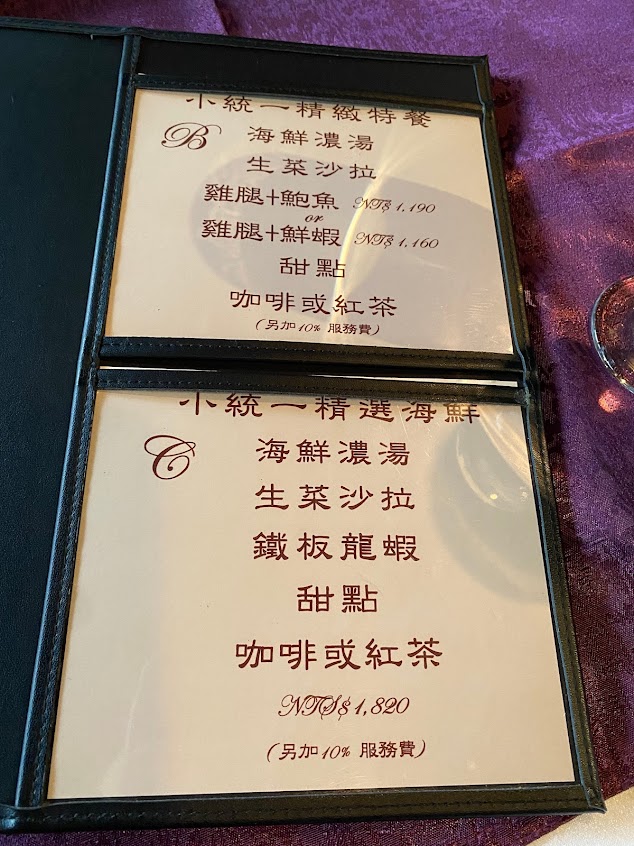 小統一精緻特餐
B
海鮮濃湯
生菜沙拉
雞腿+鮑魚 NT$ 1,190
or
雞腿+鮮蝦 NT$ 1,160
甜點
咖啡或紅茶
(另加10% 服務費)
小統一精選海鮮
C
海鮮濃湯
生菜沙拉
鐵板龍蝦
甜點
咖啡或紅茶
NTS$ 1,820
(另加10% 服務費)